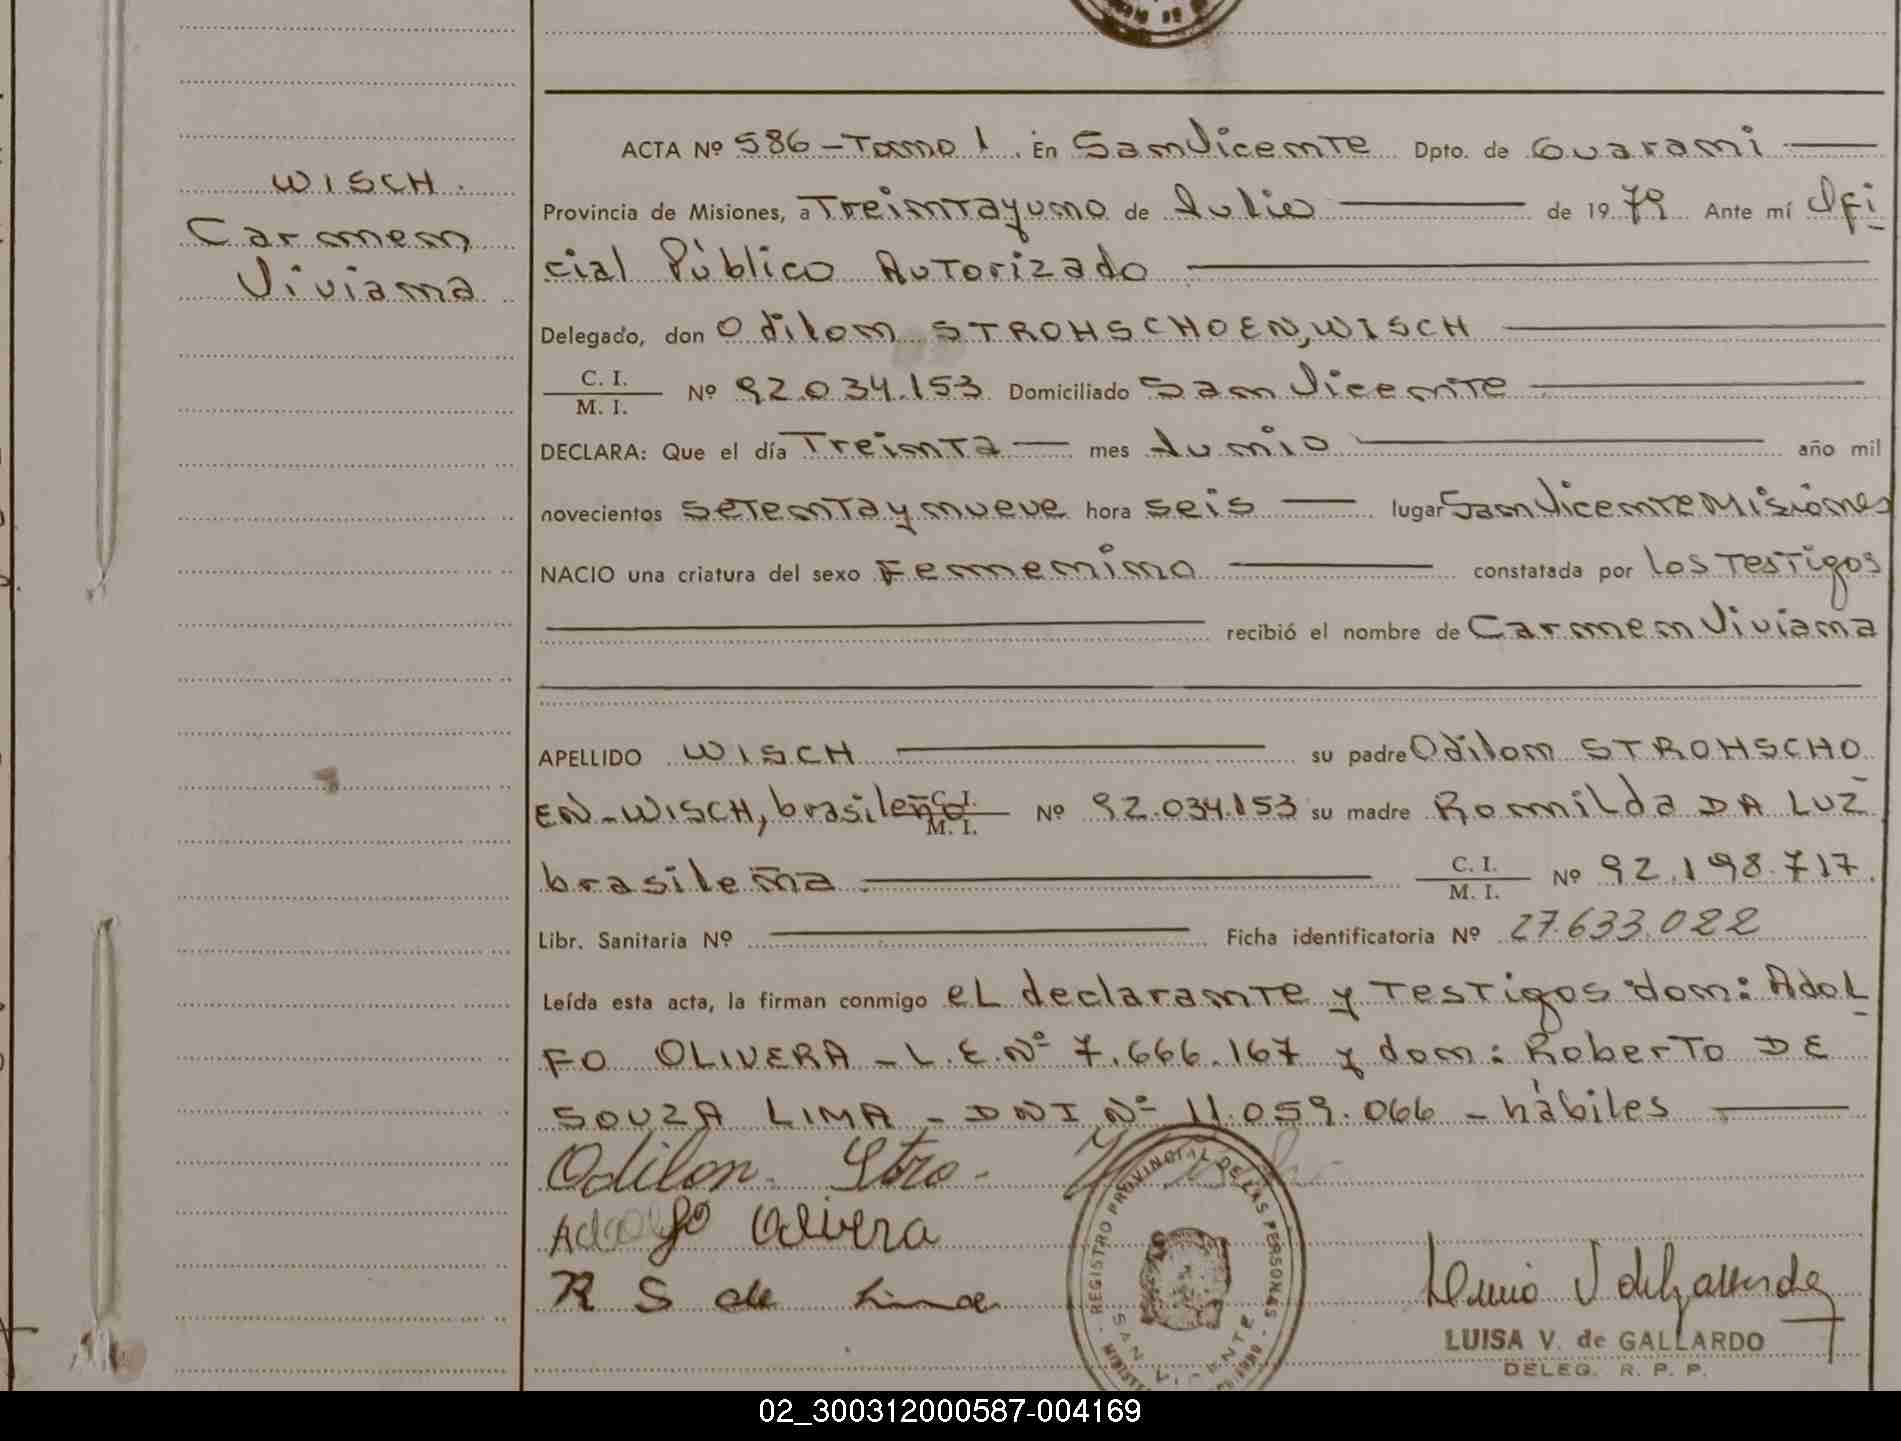 WISCH.
Carmen
Viviana
ACTA Nº 586 - Tomo 1. En San Vicente Dpto. de Guarani
Provincia de Misiones, a Treintayuno de Julio de 1979 Ante mí Ofi
cial Público Autorizado
Delegado, don Odilon STROHSCHOEN, WISCH
C. I.
M. I. Nº 92.034.153 Domiciliado San Vicente
DECLARA: Que el día Treinta mes Junio año mil
novecientos setentaynueve hora seis lugar San Vicente Misiones
NACIO una criatura del sexo Femenino constatada por los Testigos
recibió el nombre de Carmen Viviana
APELLIDO WISCH su padre Odilon STROHSCHO
EN-WISCH, brasileño C. I. M. I. Nº 92.034.153 su madre Romilda DA LUZ
brasileña C. I. M. I. Nº 92.198.717.
Libr. Sanitaria Nº Ficha identificatoria Nº 27.633.022
Leída esta acta, la firman conmigo el declarante y Testigos don: Adol
FO OLIVERA - L.E.Nº 7.666.167 y don: Roberto DE
SOUZA LIMA - DNI Nº 11.059.066 - hábiles
Odilon Stro-
Adolfo Olivera
R S de Lima
REGISTRO PROVINCIAL DE LAS PERSONAS
LUISA V. de GALLARDO
DELEG. R. P. P.
02_300312000587-004169